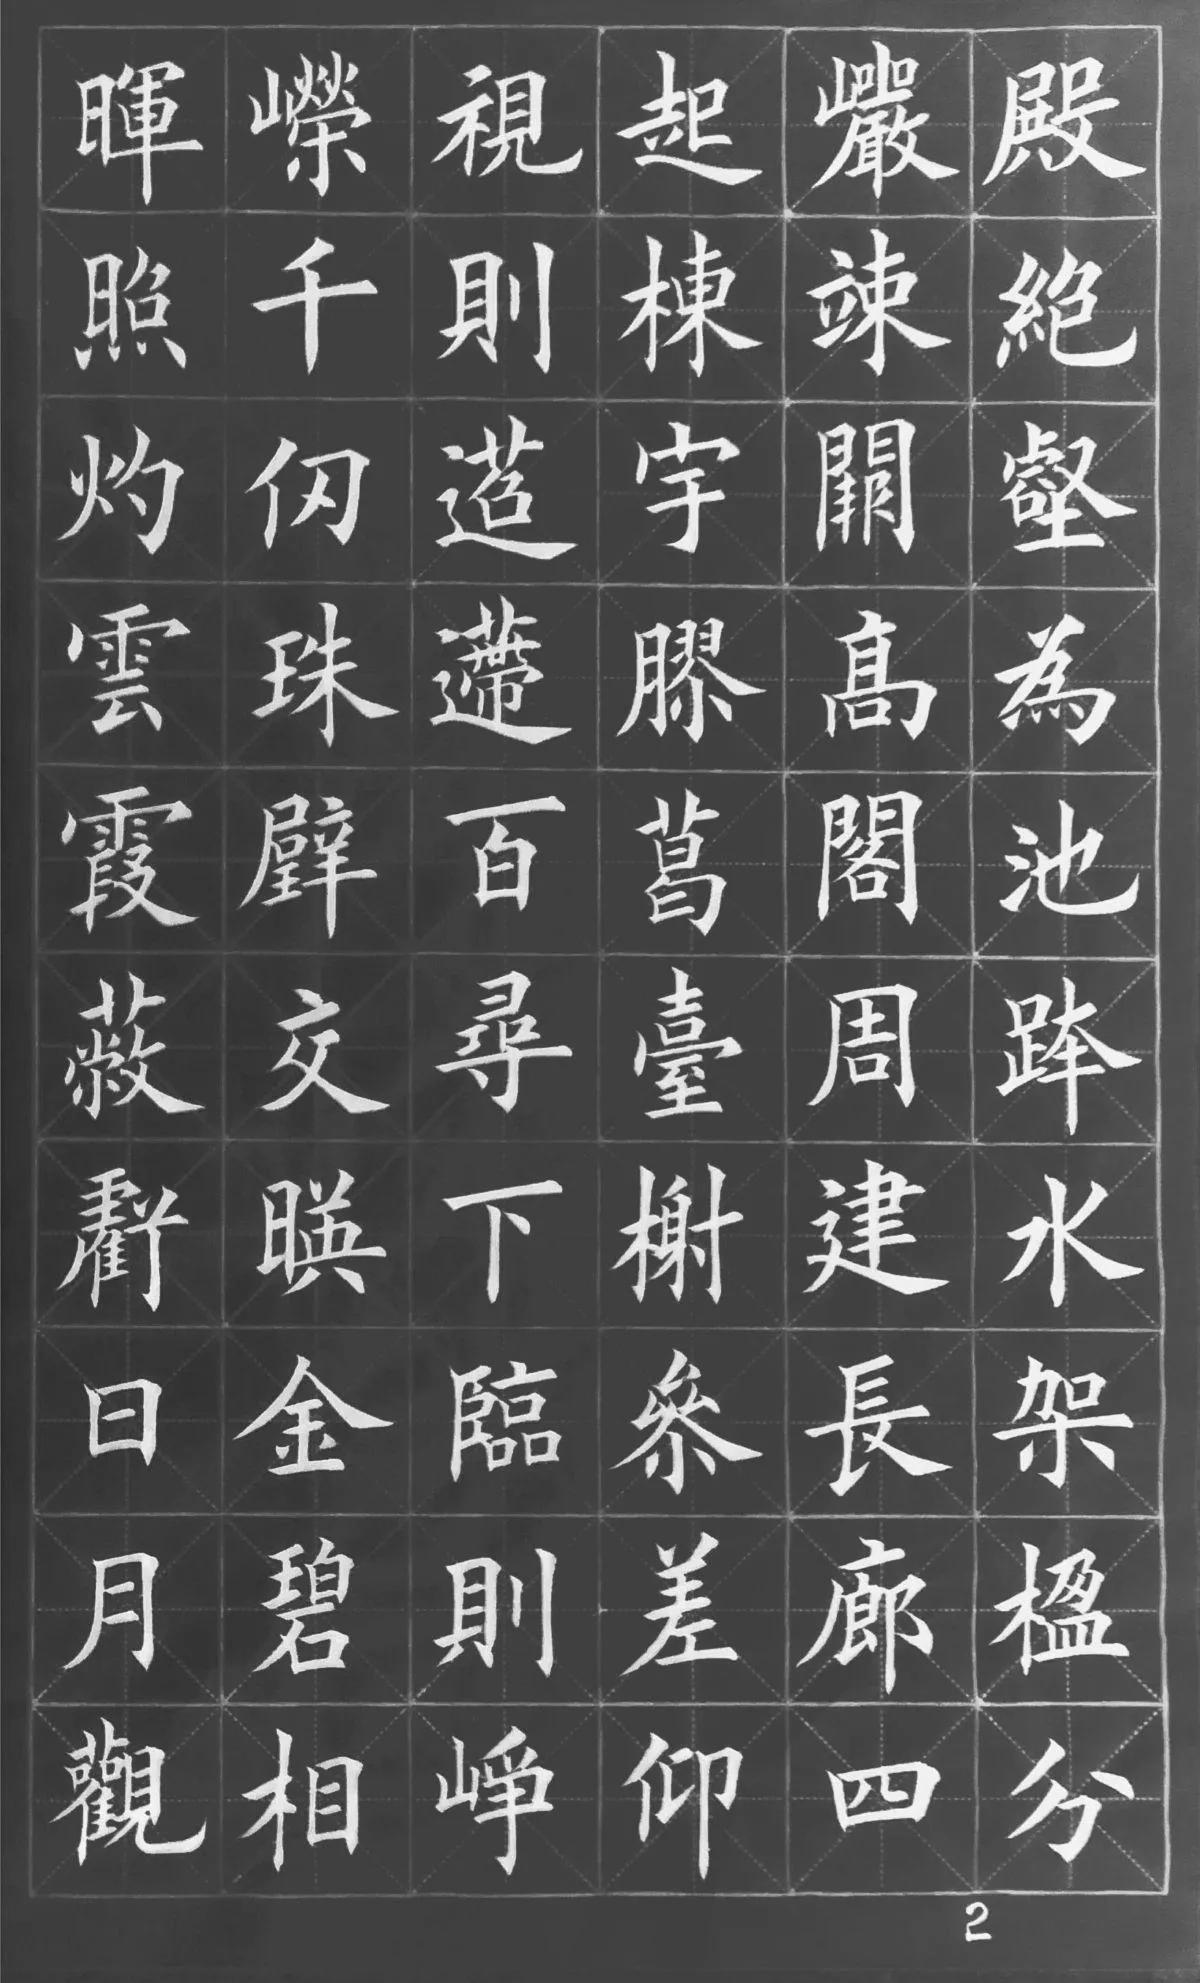 殿絕壑為池跨水架楹分
巖竦闕高閣周建長廊四
起棟宇膠葛臺榭參差仰
視則迢遰百尋下臨則崢
嶸千仞珠璧交映金碧相
暉照灼雲霞蔽虧日月觀
2